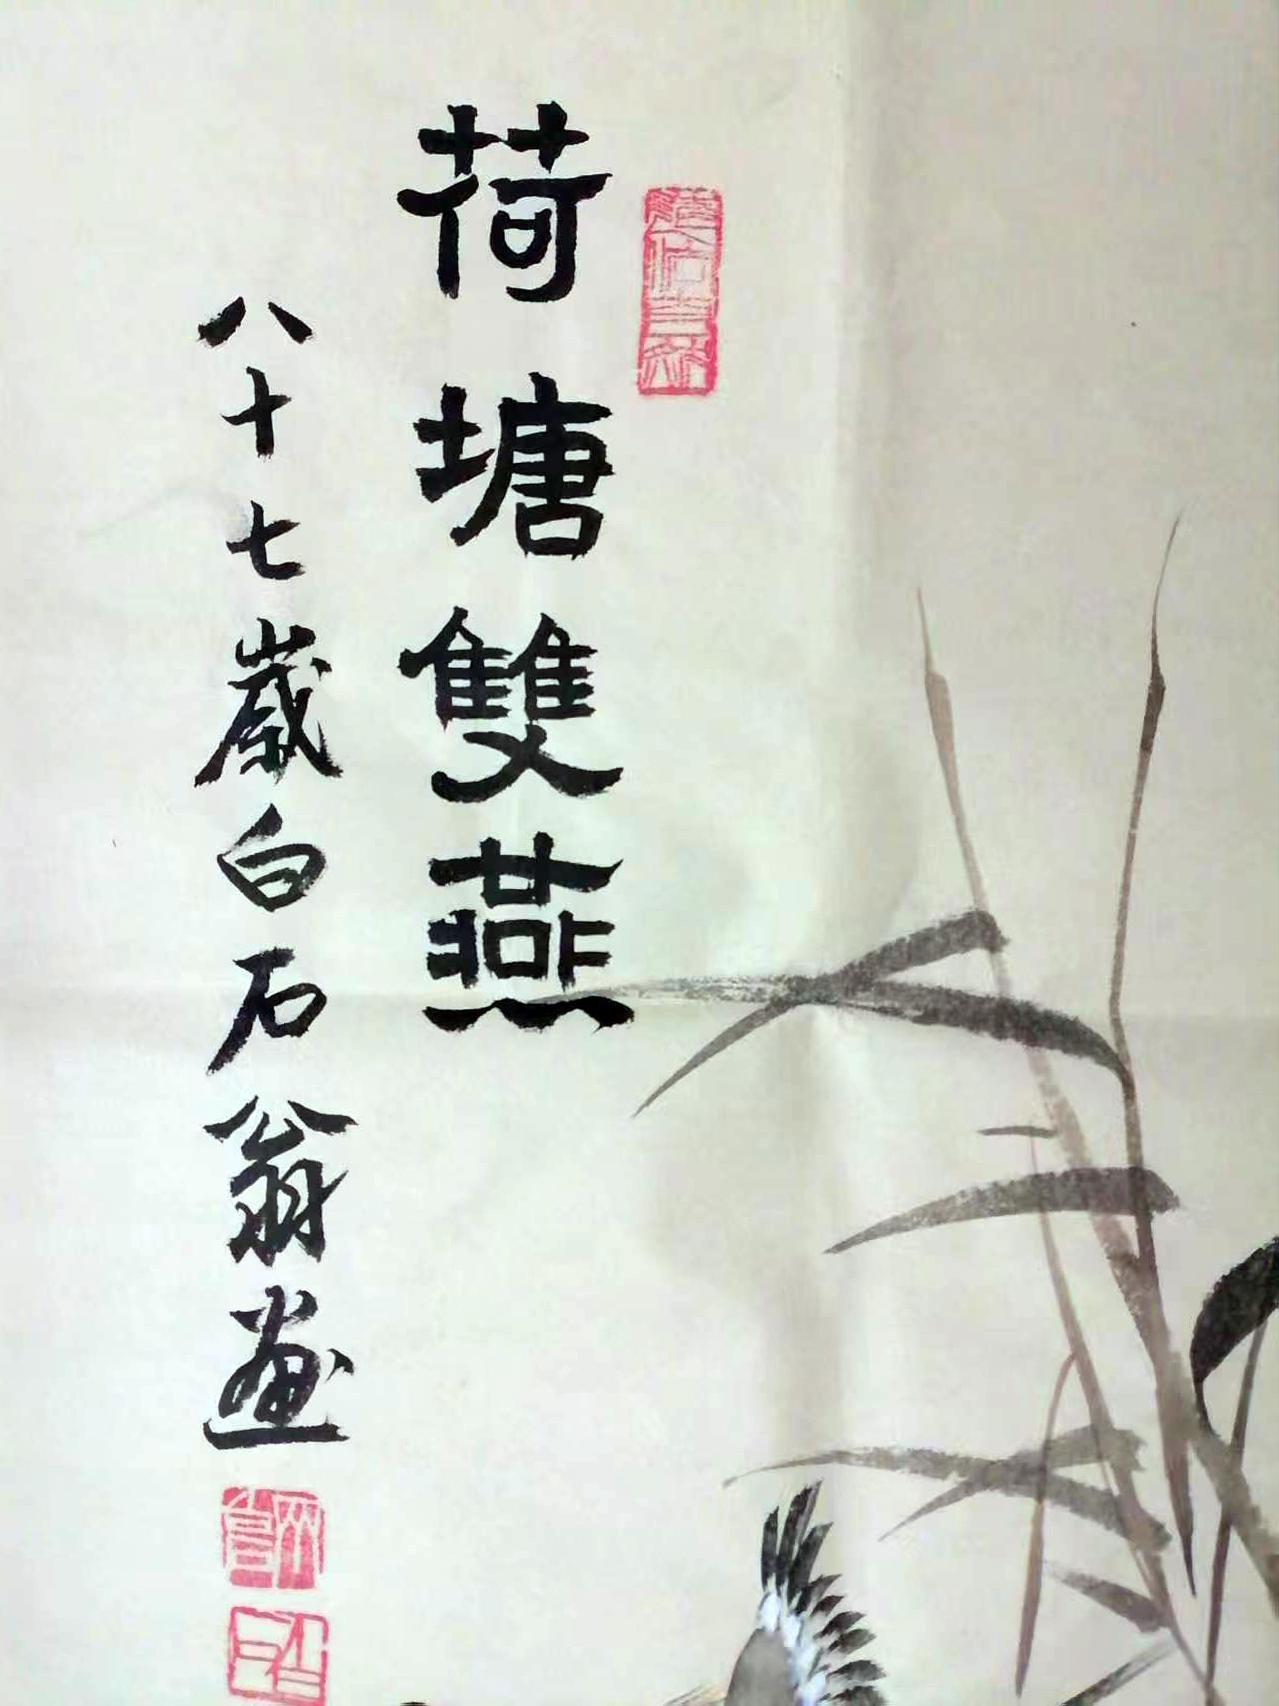 荷塘雙燕
八十七歲白石翁畫